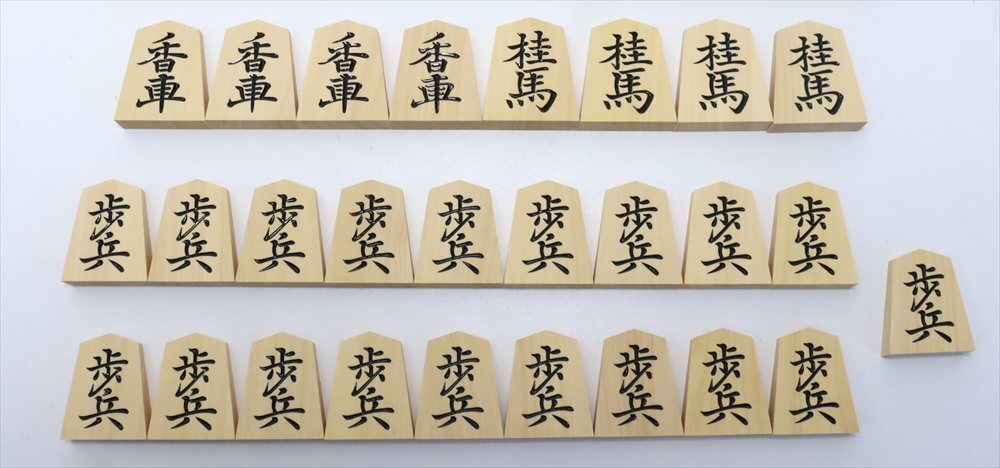 香車 香車 香車 香車 桂馬 桂馬 桂馬 桂馬
歩兵 歩兵 歩兵 歩兵 歩兵 歩兵 歩兵 歩兵 歩兵
歩兵
歩兵 歩兵 歩兵 歩兵 歩兵 歩兵 歩兵 歩兵 歩兵